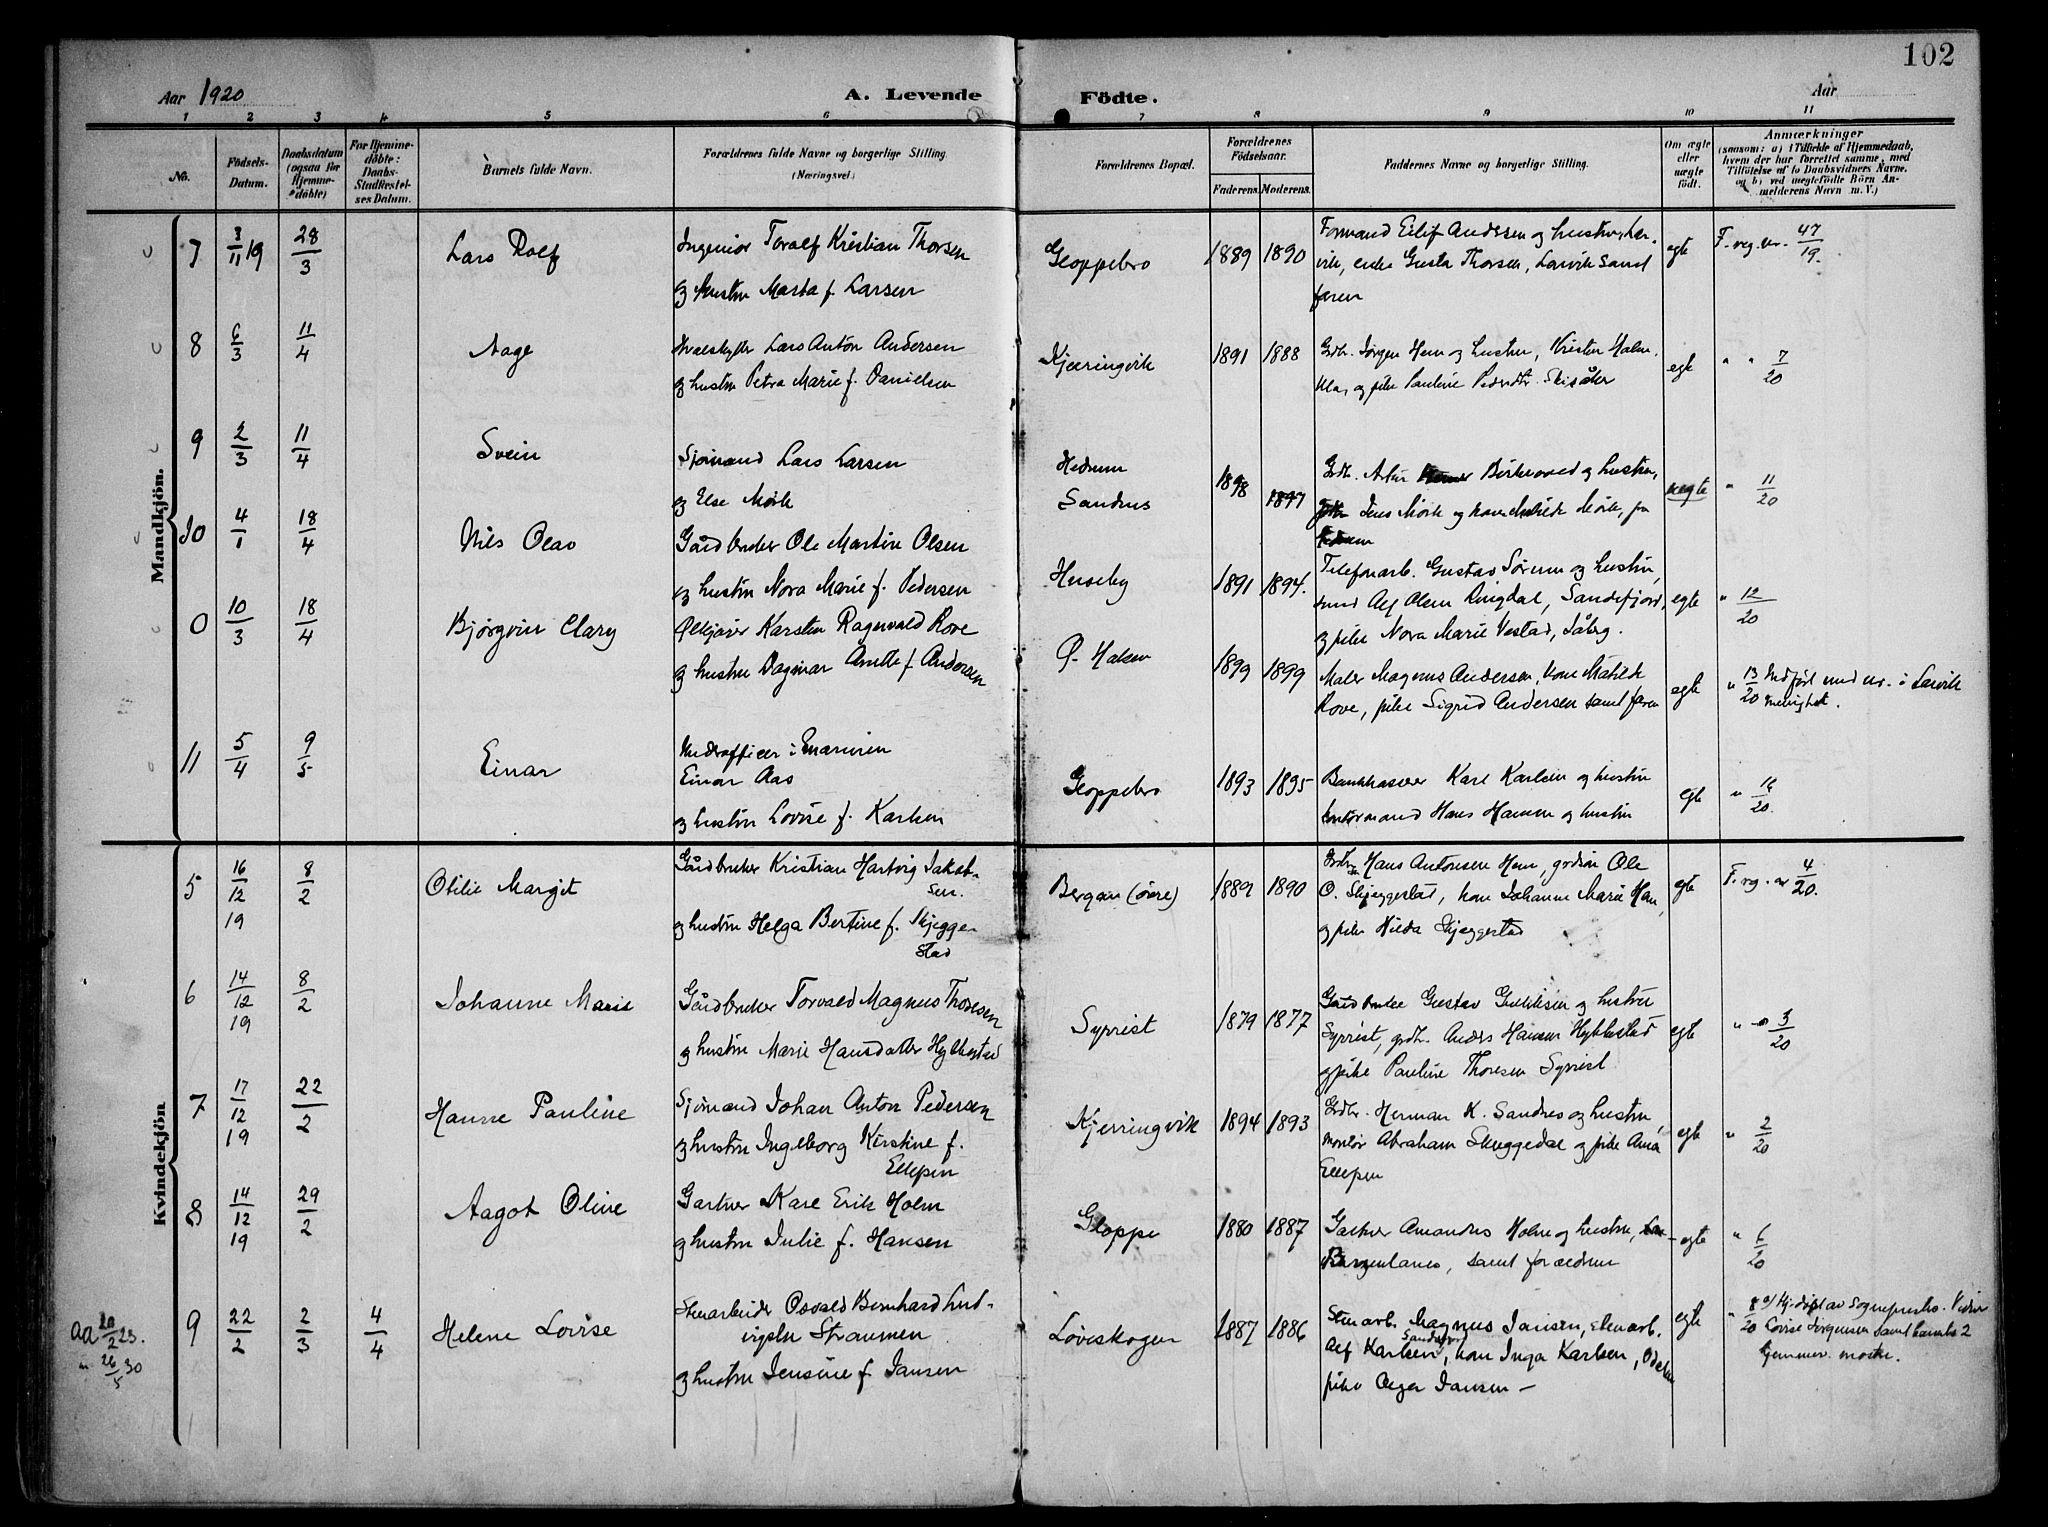 102
Aar 1920
A. Levende
Födte.
Aar
1 2 3 4 5 6 7 8 9 10 11
No.
Födsels-Datum.
Daabsdatum (ogsaa för Hjemme-döbte)
For Hjemme-döbte: Daabs-Stadfæstel-ses Datum.
Barnets fulde Navn.
Forældrenes fulde Navne og borgerlige Stilling.
(Næringsvei.)
Forældrenes Bopæl.
Forældrenes Födselsaar.
Faderens. Moderens.
Faddernes Navne og borgerlige Stilling.
Om ægte eller uægte födt.
Anmærkninger
(saasom: a) i Tilfælde af Hjemmedaab,
hvem der har forrettet samme, med
Tilföielse af to Daabsvidners Navne,
og b) ved uægtefödte Börn An-
melderens Navn m. V.)
Mandkjön.
7 3/11 19 28/3 Lars Rolf
Ingeniør Toralf Kristian Thorsen
og hustru Marta f. Larsen
Gloppebro 1889 1890
Formand Eilif Andersen og hustru, Lar-
vik, enke Gusta Thorsen, Larvik samt
faren
egte F. reg. nr. 47/19.
8 6/3 11/4 Aage
Hvalskytter Lars Anton Andersen
og hustru Petra Marie f. Danielsen
Kjerringvik 1891 1888
Grdbr. Jørgen Hem og hustru, Kristen Halm.
og pike Pauline
egte " " 7/20
9 2/3 11/4 Svein
Sjømand Lars Larsen
og Else Mørk
Hedrum
Sandnes
1898 1897
Jens Mørk og kone Mathilde Mørk, fra
Hedrum
uegte " 11/20
10 4/1 18/4 Nils Olav
Gårdbruker Ole Martin Olsen
og hustru Nora Marie f. Pedersen
Huseby 1891 1894.
Telefonarb. Gustav Sørum og hustru,
Alf Olsen Ringdal, Sandefjord,
og pike Nora Marie Vestad,
egte " 12/20
0 10/3 18/4 Bjørgvin Clary
Oljekjører Karsten Ragnvald Rove
og hustru Dagmar Anette f. Andersen
Ø. Halsen 1899 1899
Maler Magnus Andersen, kone Matilde
Rove, pike Sigrid Andersen samt faren
egte " 13/20 Indført uten nr. i Larvik
menighet.
11 5/4 9/5 Einar
Underofficer i marinen
Einar Aas
og hustru Lovise f. Karlsen
Gloppebro 1893 1895
Bankkasserer Karl Karlsen og hustru
Hans Hansen og hustru
egte " 14/20.
Kvindekjön
5 16/12 19 8/2 Otilie Margit
Gårdbruker Kristian Hartvig Jakob-
sen.
og hustru Helga Bertine f. Skjegge-
stad
Bergan (øvre) 1889 1890
Grdbr. Hans Antonsen Hem, grdsøn Ole
O. Skjeggestad, kone Johanne Marie Hem,
og pike Hilda Skjeggestad
egte F. reg. nr 4/20.
6 14/12 19 8/2 Johanne Marie
Gårdbruker Torvald Magnus Thoresen
og hustru Marie Hansdatter Hyllestad
Syrrist 1879 1877
Gårdbruker Gustav Gulliksen og hustru
Syrrist, grdbr. Anders Hansen Hyllestad
og pike Pauline Thoresen Syrrist
egte " " 3/20
7 17/12 19 22/2 Hanne Pauline
Sjømand Johan Anton Pedersen
og hustru Ingeborg Kirstine f.
Ellefsen
Kjerringvik 1894 1893
Grdbr. Herman K. Sandnes og hustru,
montør Abraham Skuggedal og pike Anna
Ellefsen
egte " 2/20
8 14/12 19 29/2 Aagot Oline
Gartner Karl Erik Holm
og hustru Julie f. Hansen
Gloppe 1880 1887
Gartner Amandus Holm og hustru,
samt forældrene
egte " 6/20
aa 20/2 23.
" 26/5 30
9 22/2 2/3 4/4 Helene Lovise
Stenarbeider Osvald Bernhard Lud-
vigsen Straumen
og hustru Jensine f. Jansen
Løveskogen 1887 1886
Stenarb. Magnus Jansen, stenarb.
Alf Karlsen, Sandefjord, kone Inga Karlsen,
pike Olga Jansen –
egte " 8/20 a/ Hj. døpt av Sogneprests. Vidner
Lovise Jørgensen samt barnets
hjemmev. mor.